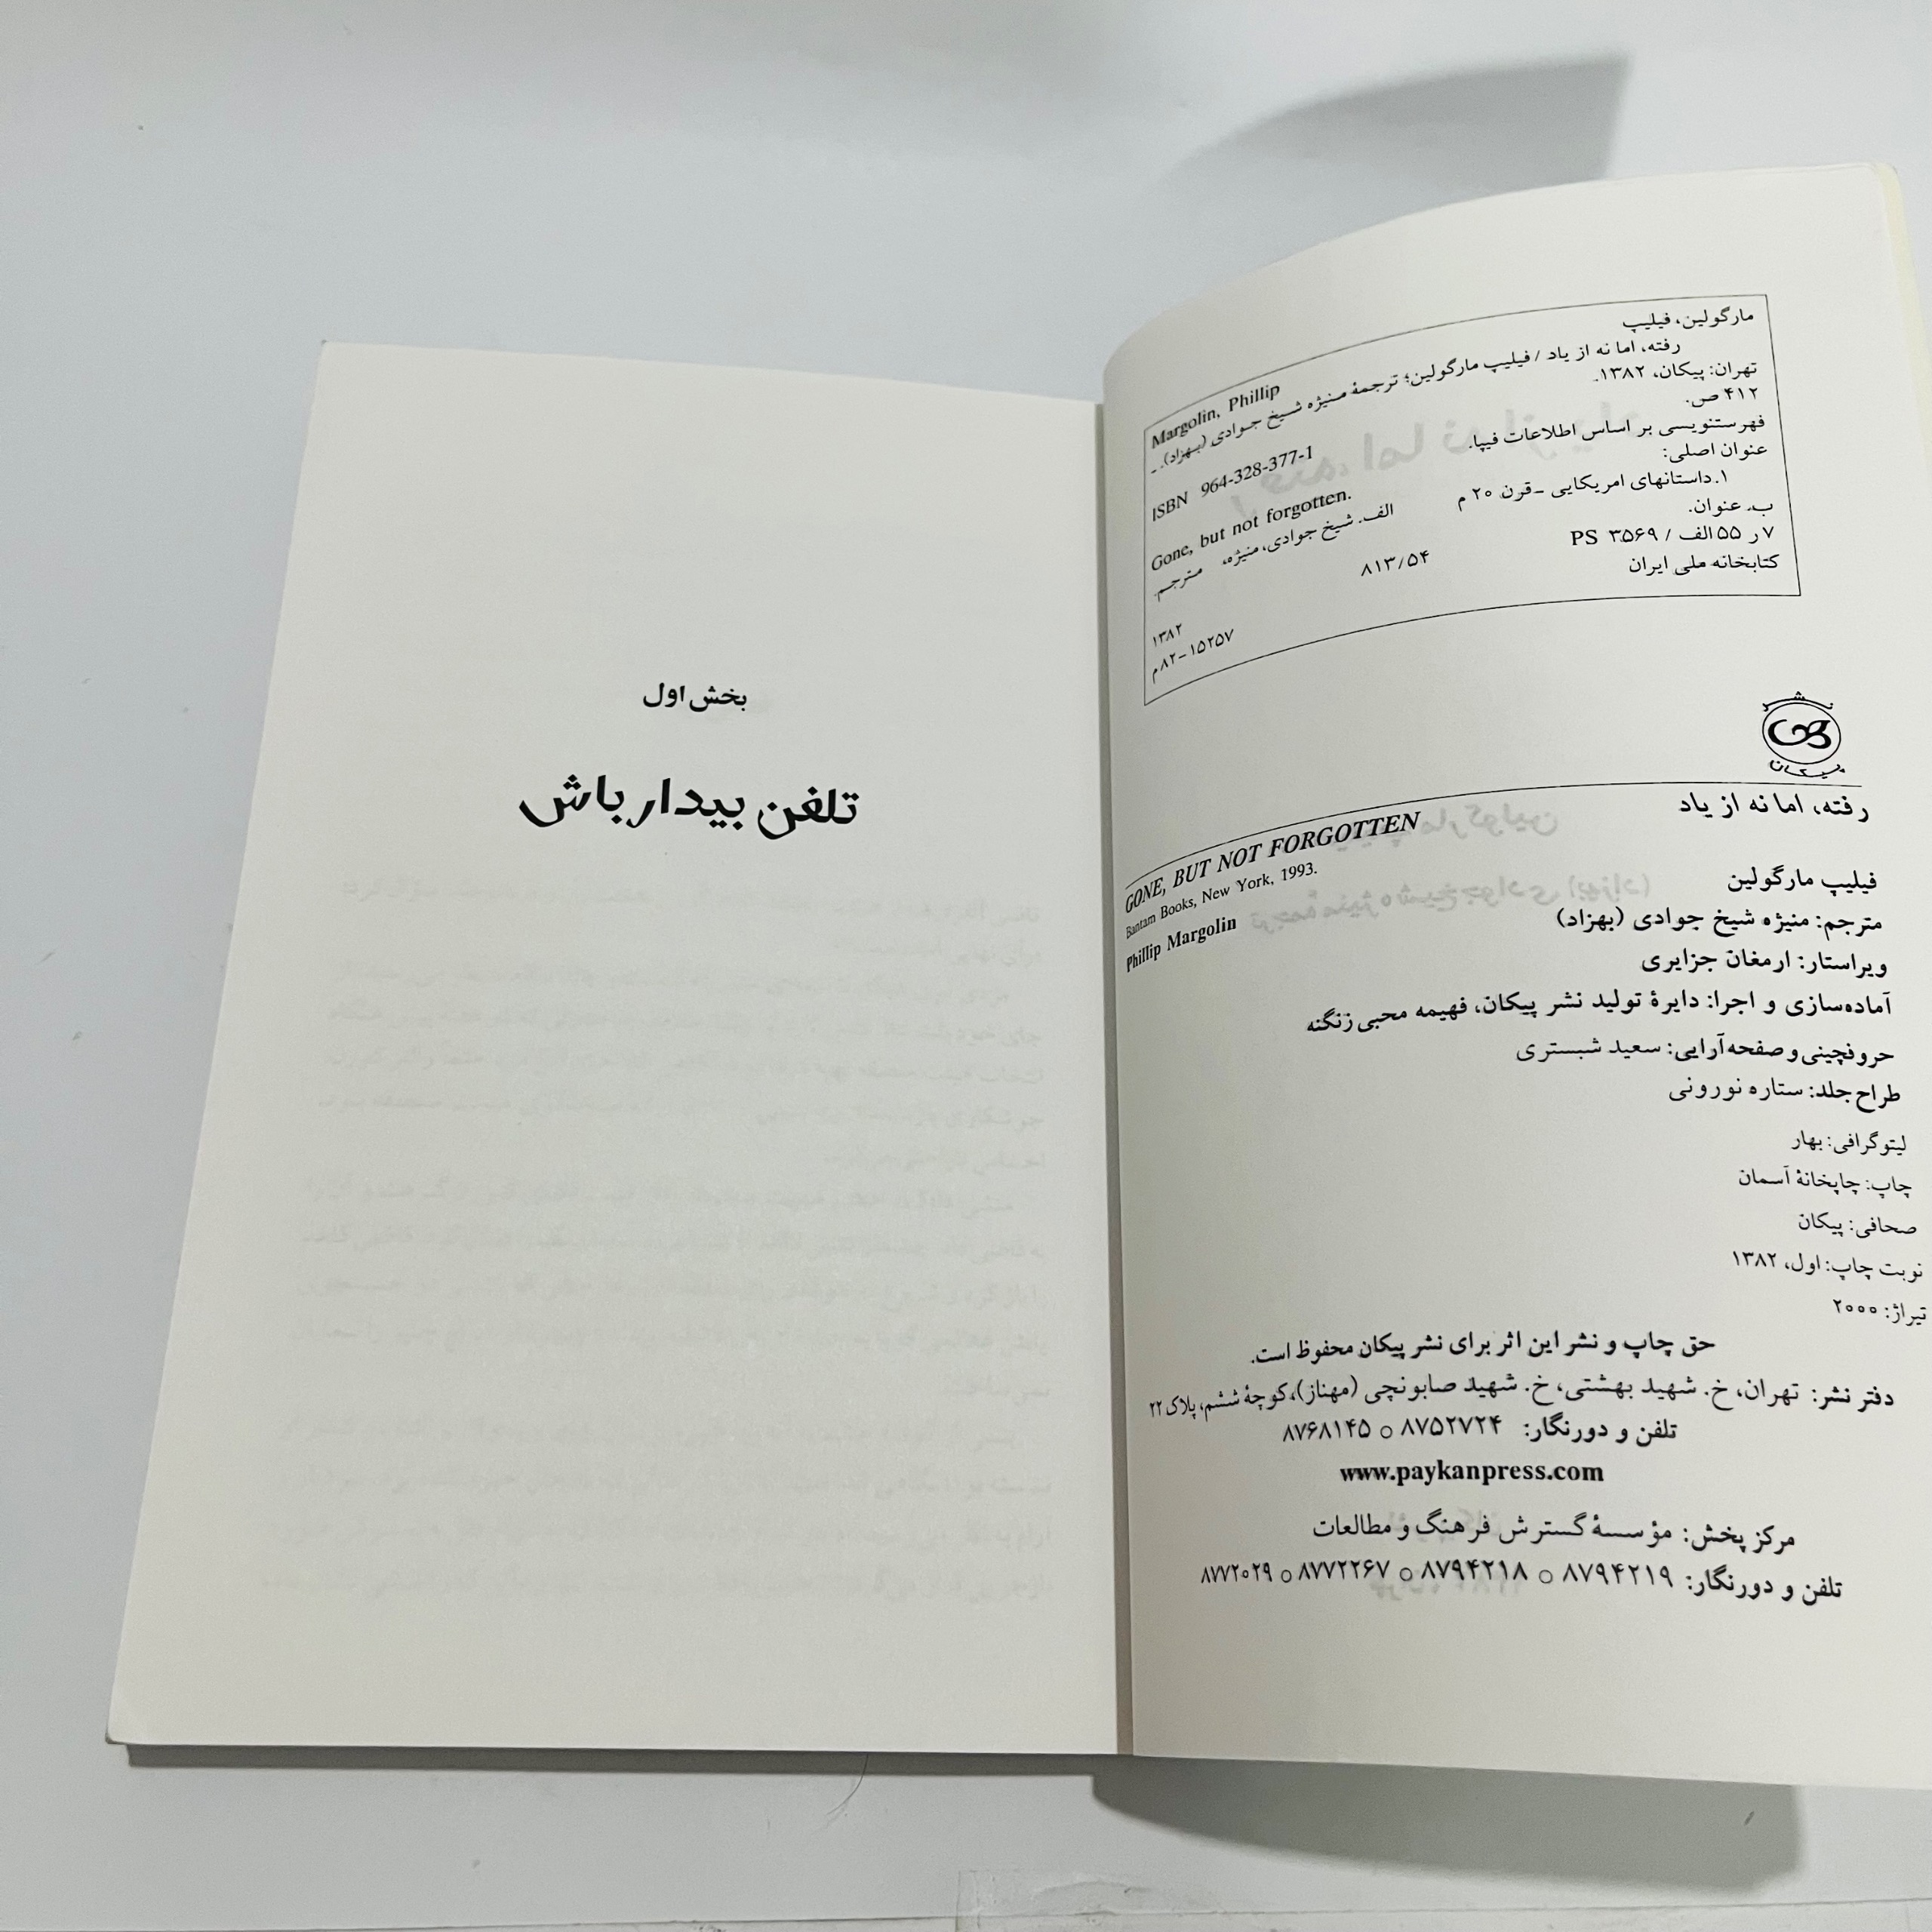 مارگولین، فیلیپ
Margolin, Phillip
رفته، اما نه از یاد / فیلیپ مارگولین؛ ترجمهٔ منیژه شیخ جوادی (بهزاد). ـ
تهران: پیکان، ۱۳۸۲.
۴۱۲ ص.
ISBN 964-328-377-1
فهرستنویسی بر اساس اطلاعات فیپا.
عنوان اصلی: Gone, but not forgotten.
۱.داستانهای امریکایی ـ قرن ۲۰ م الف. شیخ جوادی، منیژه، مترجم.
ب. عنوان.
۷ر ۵۵الف / PS ۳۵۶۹ ۸۱۳/۵۴
۱۳۸۲
کتابخانه ملی ایران ۱۵۲۵۷-۸۲م
نشر
پیکان
رفته، اما نه از یاد
GONE, BUT NOT FORGOTTEN
Bantam Books, New York, 1993.
فیلیپ مارگولین Phillip Margolin
مترجم: منیژه شیخ جوادی (بهزاد)
ویراستار: ارمغان جزایری
آماده‌سازی و اجرا: دایرهٔ تولید نشر پیکان، فهیمه محبی زنگنه
حروفچینی و صفحه‌آرایی: سعید شبستری
طراح جلد: ستاره نورونی
لیتوگرافی: بهار
چاپ: چاپخانهٔ آسمان
صحافی: پیکان
نوبت چاپ: اول، ۱۳۸۲
تیراژ: ۲۰۰۰
حق چاپ و نشر این اثر برای نشر پیکان محفوظ است.
دفتر نشر: تهران، خ. شهید بهشتی، خ. شهید صابونچی (مهناز)، کوچهٔ ششم، پلاک ۲۲
تلفن و دورنگار: ۸۷۵۲۷۲۴ ○ ۸۷۶۸۱۴۵
www.paykanpress.com
مرکز پخش: مؤسسهٔ گسترش فرهنگ و مطالعات
تلفن و دورنگار: ۸۷۹۴۲۱۹ ○ ۸۷۹۴۲۱۸ ○ ۸۷۷۲۲۶۷ ○ ۸۷۷۲۰۲۹
بخش اول
تلفن بیدارباش